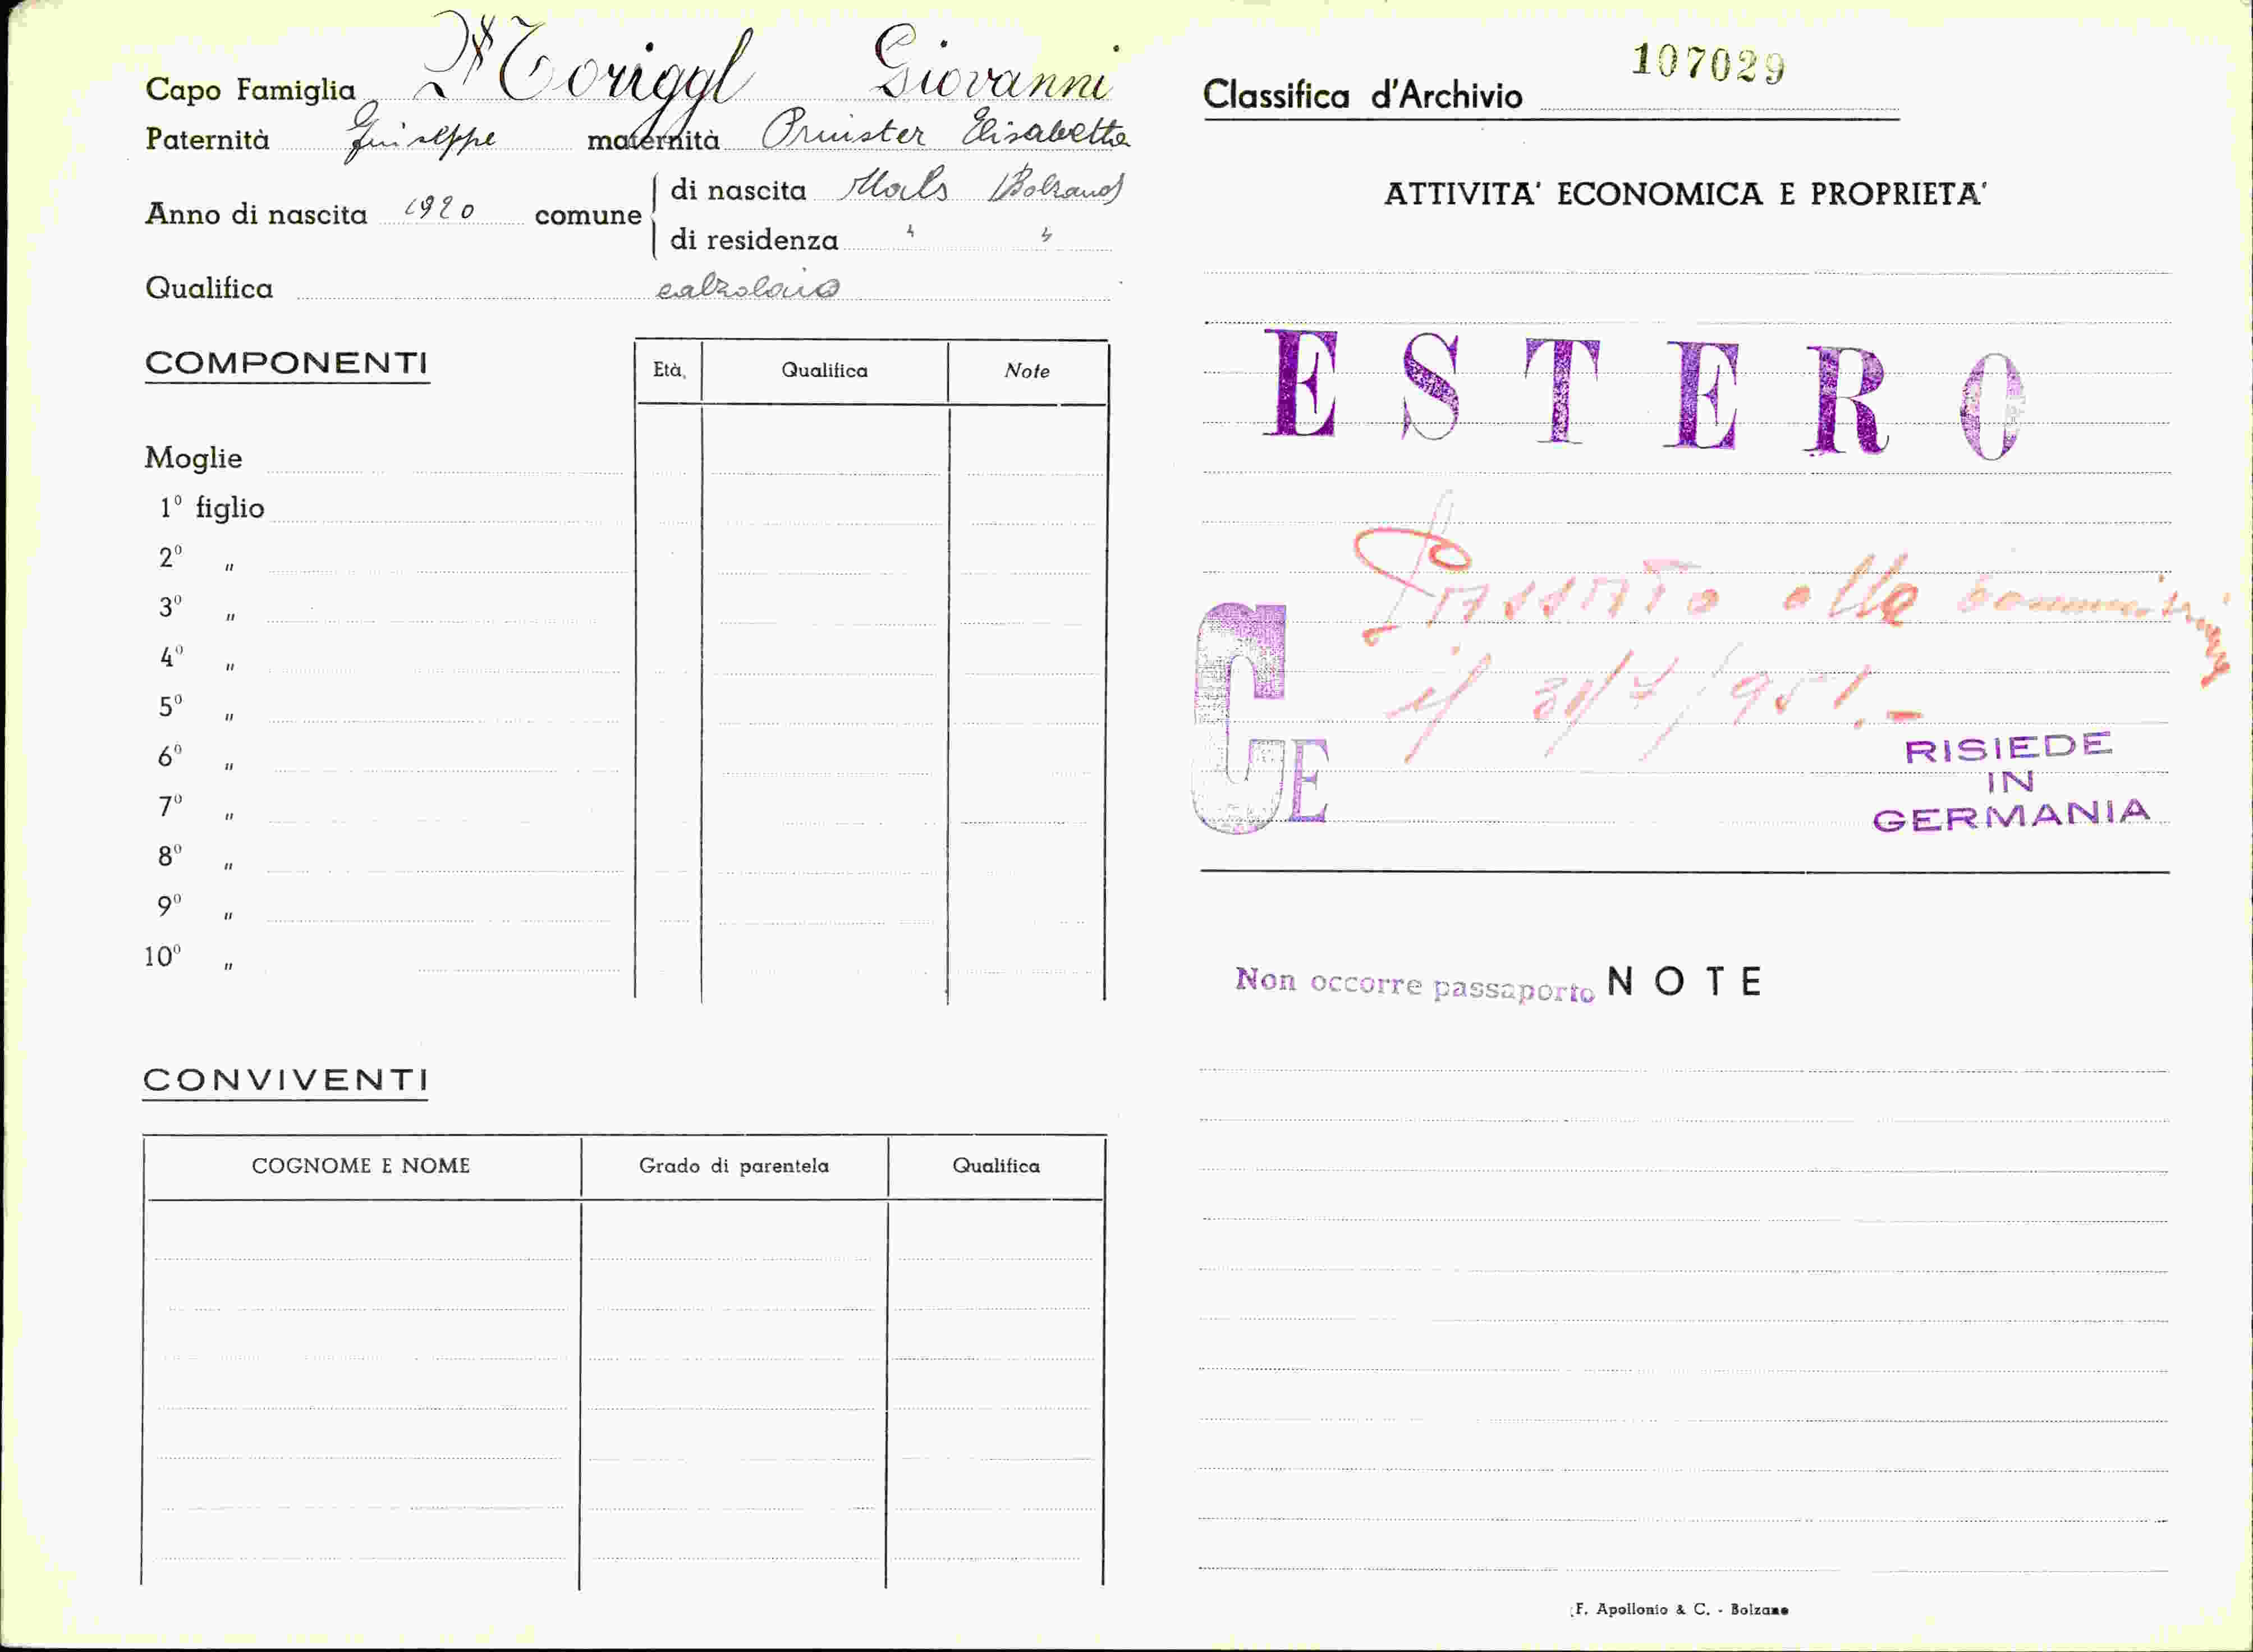 Capo Famiglia Moriggl Giovanni
Paternità Giuseppe maternità Pruister Elisabetta
Anno di nascita 1920 comune
di nascita Mals (Bolzano)
di residenza " "
Qualifica calzolaio
COMPONENTI
Età, Qualifica Note
Moglie
1º figlio
2º "
3º "
4º "
5º "
6º "
7º "
8º "
9º "
10º "
CONVIVENTI
COGNOME E NOME Grado di parentela Qualifica
107029
Classifica d'Archivio
ATTIVITA' ECONOMICA E PROPRIETA'
ESTERO
Passato alla
il 31/7/951.-
CE
RISIEDE
IN
GERMANIA
Non occorre passaporto NOTE
F. Apollonio & C. - Bolzano